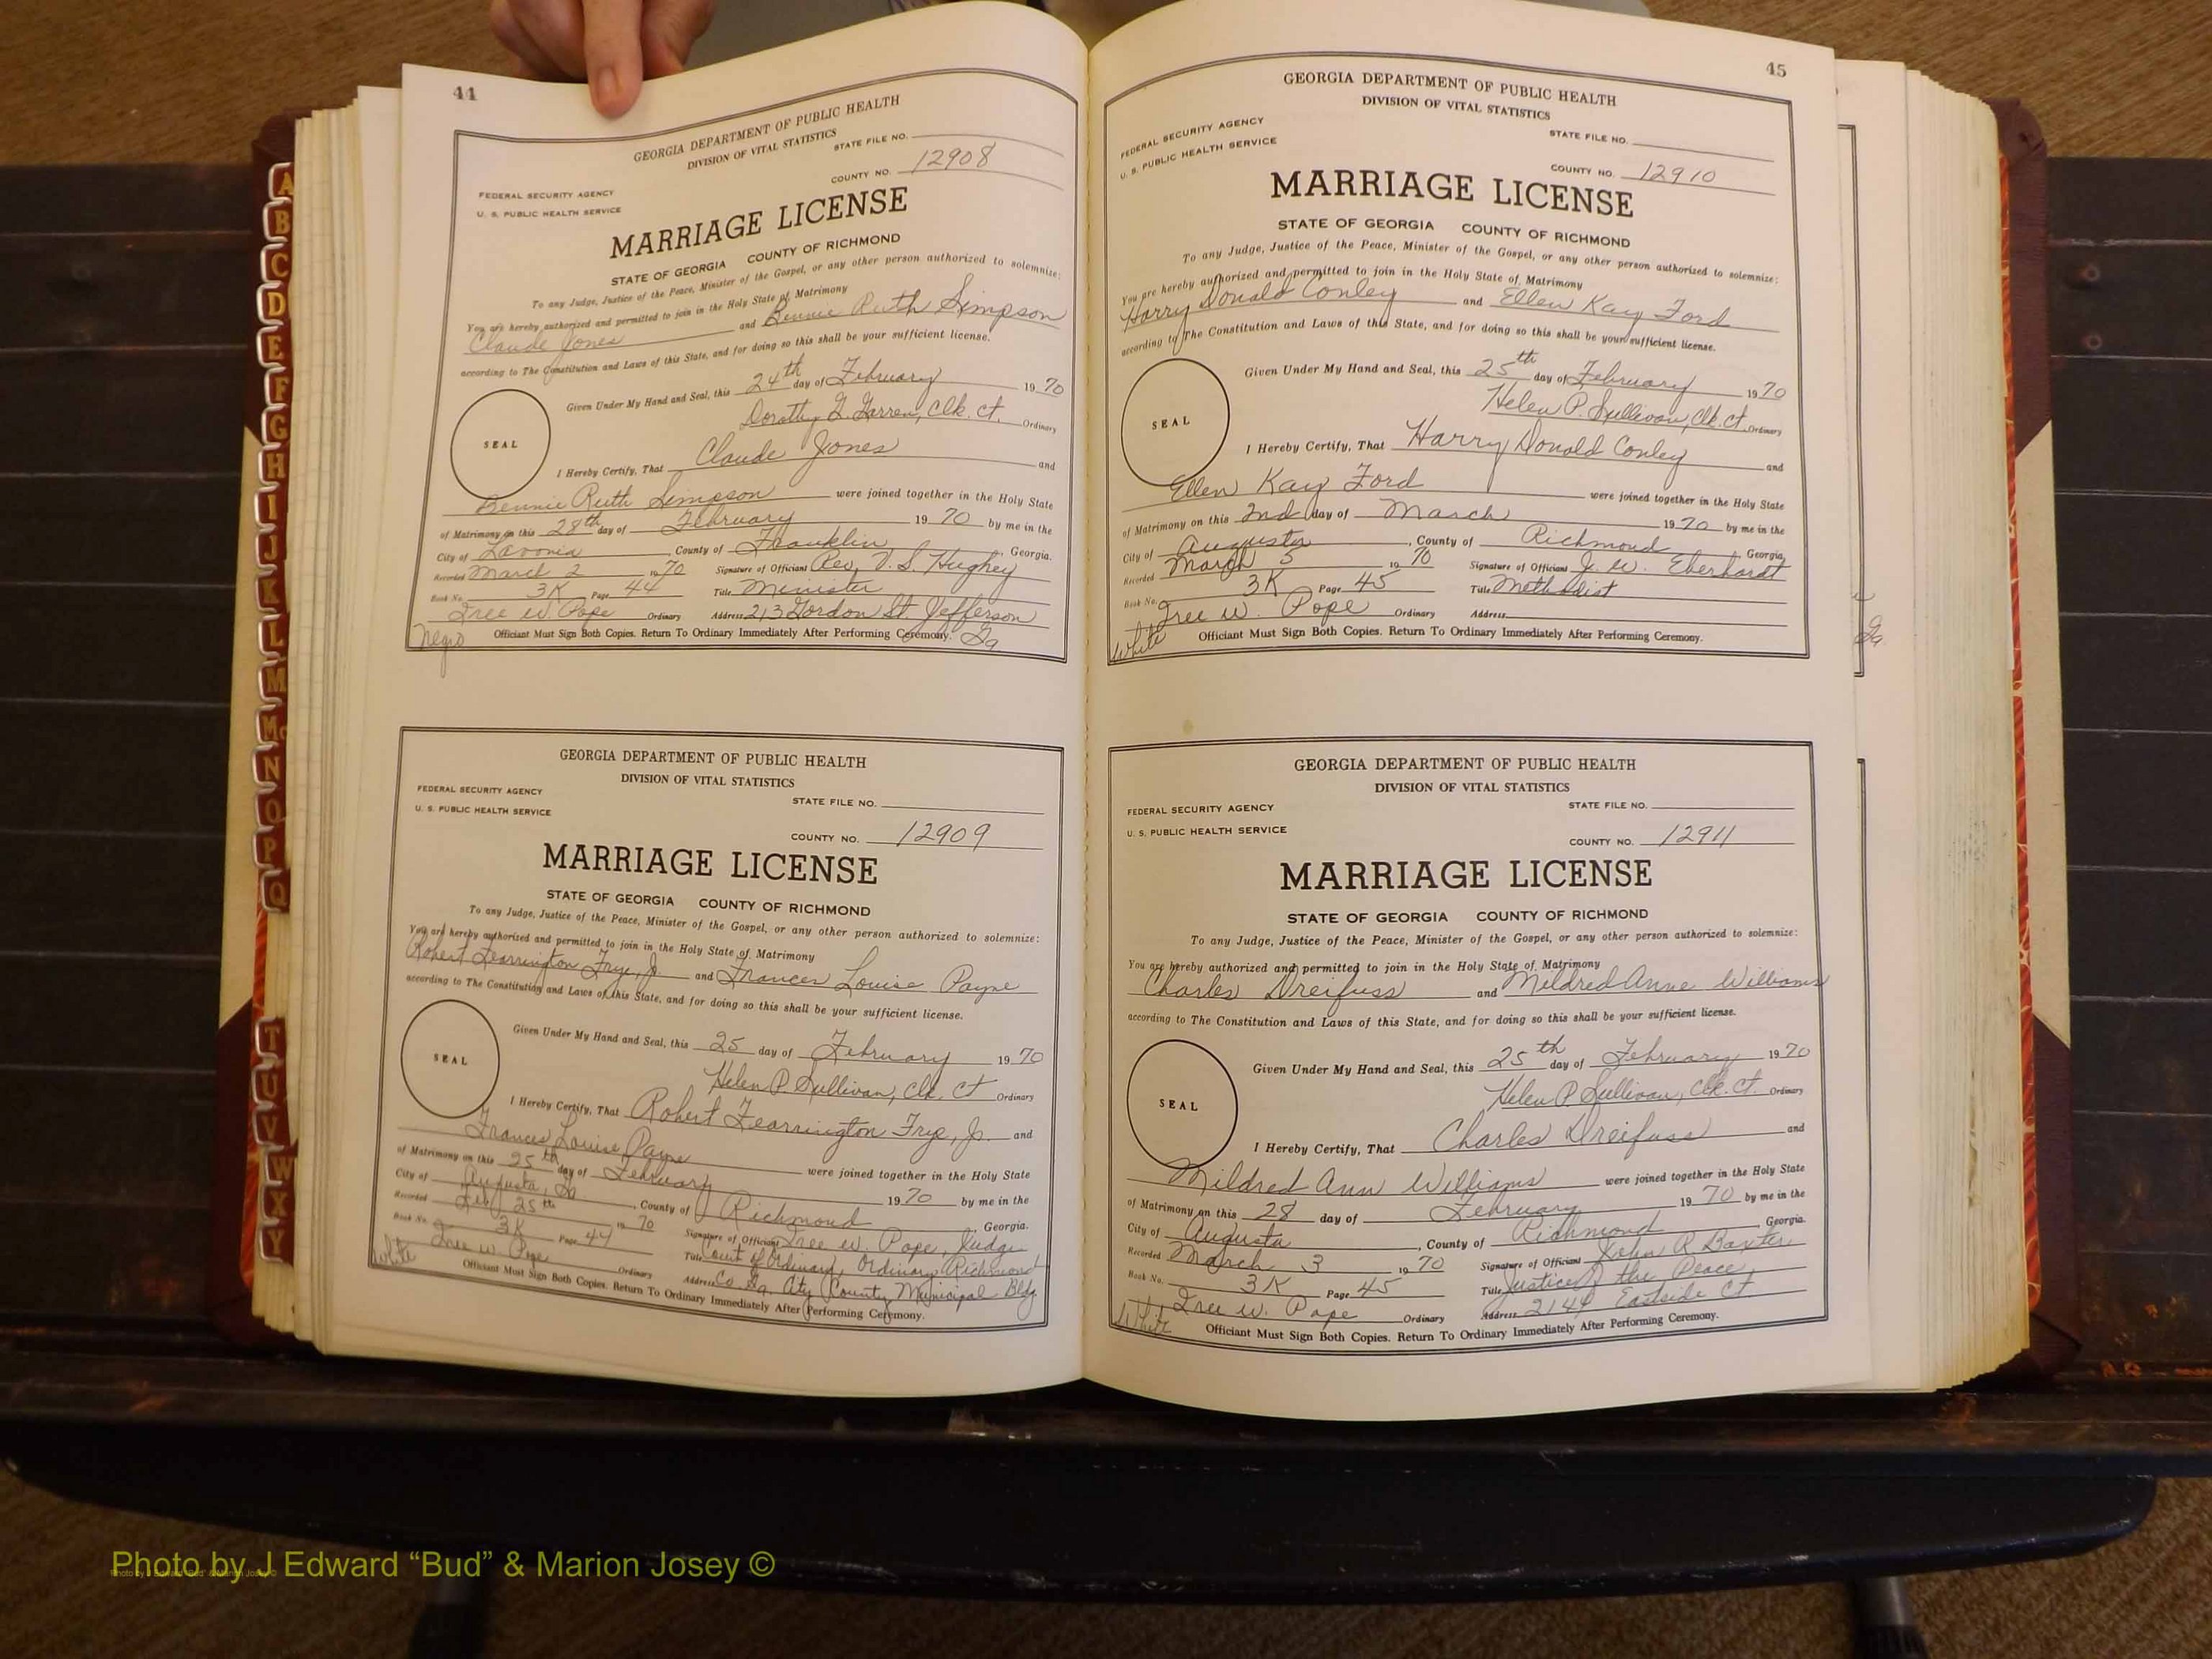 44
GEORGIA DEPARTMENT OF PUBLIC HEALTH
DIVISION OF VITAL STATISTICS
STATE FILE NO.
COUNTY NO. 12908
FEDERAL SECURITY AGENCY
U. S. PUBLIC HEALTH SERVICE
MARRIAGE LICENSE
STATE OF GEORGIA COUNTY OF RICHMOND
To any Judge, Justice of the Peace, Minister of the Gospel, or any other person authorized to solemnize:
You are hereby authorized and permitted to join in the Holy State of Matrimony
Claude Jones and Bennie Ruth Simpson
according to The Constitution and Laws of this State, and for doing so this shall be your sufficient license.
Given Under My Hand and Seal, this 24th day of February 1970
SEAL
Dorothy G. Garren, Clk. Ct. Ordinary
I Hereby Certify, That Claude Jones and
Bennie Ruth Simpson were joined together in the Holy State
of Matrimony on this 28th day of February 1970 by me in the
City of Lavonia, County of Franklin, Georgia.
Recorded March 2 1970 Signature of Officiant Rev. V. S. Hughey
Book No. 3K Page 44 Title Minister
Iree W. Pope Ordinary Address 213 Gordon St. Jefferson
Negro Officiant Must Sign Both Copies. Return To Ordinary Immediately After Performing Ceremony. Ga
GEORGIA DEPARTMENT OF PUBLIC HEALTH
DIVISION OF VITAL STATISTICS
FEDERAL SECURITY AGENCY
STATE FILE NO.
U. S. PUBLIC HEALTH SERVICE
COUNTY NO. 12909
MARRIAGE LICENSE
STATE OF GEORGIA COUNTY OF RICHMOND
To any Judge, Justice of the Peace, Minister of the Gospel, or any other person authorized to solemnize:
You are hereby authorized and permitted to join in the Holy State of Matrimony
Robert Fearrington Frye, Jr. and Frances Louise Payne
according to The Constitution and Laws of this State, and for doing so this shall be your sufficient license.
Given Under My Hand and Seal, this 25 day of February 1970
SEAL
Helen P. Sullivan, Clk. Ct Ordinary
I Hereby Certify, That Robert Fearrington Frye, Jr. and
Frances Louise Payne were joined together in the Holy State
of Matrimony on this 25th day of February 1970 by me in the
City of Augusta, Ga, County of Richmond, Georgia.
Recorded Feb 25th 1970 Signature of Officiant Iree W. Pope, Judge
Book No. 3K Page 44 Title Court of Ordinary, Ordinary Richmond
Iree W. Pope Ordinary Address Co Ga. City County Municipal Bldg.
White Officiant Must Sign Both Copies. Return To Ordinary Immediately After Performing Ceremony.
45
GEORGIA DEPARTMENT OF PUBLIC HEALTH
DIVISION OF VITAL STATISTICS
FEDERAL SECURITY AGENCY
STATE FILE NO.
U. S. PUBLIC HEALTH SERVICE
COUNTY NO. 12910
MARRIAGE LICENSE
STATE OF GEORGIA COUNTY OF RICHMOND
To any Judge, Justice of the Peace, Minister of the Gospel, or any other person authorized to solemnize:
You are hereby authorized and permitted to join in the Holy State of Matrimony
Harry Donald Conley and Ellen Kay Ford
according to The Constitution and Laws of this State, and for doing so this shall be your sufficient license.
Given Under My Hand and Seal, this 25th day of February 1970
SEAL
Helen P. Sullivan, Clk. Ct. Ordinary
I Hereby Certify, That Harry Donald Conley and
Ellen Kay Ford were joined together in the Holy State
of Matrimony on this 2nd day of March 1970 by me in the
City of Augusta, County of Richmond, Georgia.
Recorded March 5 1970 Signature of Officiant J. W. Eberhardt
Book No. 3K Page 45 Title Methodist
Iree W. Pope Ordinary Address
White Officiant Must Sign Both Copies. Return To Ordinary Immediately After Performing Ceremony.
GEORGIA DEPARTMENT OF PUBLIC HEALTH
DIVISION OF VITAL STATISTICS
FEDERAL SECURITY AGENCY
STATE FILE NO.
U. S. PUBLIC HEALTH SERVICE
COUNTY NO. 12911
MARRIAGE LICENSE
STATE OF GEORGIA COUNTY OF RICHMOND
To any Judge, Justice of the Peace, Minister of the Gospel, or any other person authorized to solemnize:
You are hereby authorized and permitted to join in the Holy State of Matrimony
Charles Dreifuss and Mildred Anne Williams
according to The Constitution and Laws of this State, and for doing so this shall be your sufficient license.
Given Under My Hand and Seal, this 25th day of February 1970
SEAL
Helen P. Sullivan, Clk. Ct. Ordinary
I Hereby Certify, That Charles Dreifuss and
Mildred Ann Williams were joined together in the Holy State
of Matrimony on this 28 day of February 1970 by me in the
City of Augusta, County of Richmond, Georgia.
Recorded March 3 1970 Signature of Officiant John R Baxter
Book No. 3K Page 45 Title Justice of the Peace
Iree W. Pope Ordinary Address 2144 Eastside Ct
White Officiant Must Sign Both Copies. Return To Ordinary Immediately After Performing Ceremony.
Ga
A
B
C
D
E
F
G
H
I
J
K
L
M
Mc
N
O
P
Q
T
U
V
W
X
Y
Photo by J Edward “Bud” & Marion Josey ©
Photo by J Edward “Bud” & Marion Josey ©